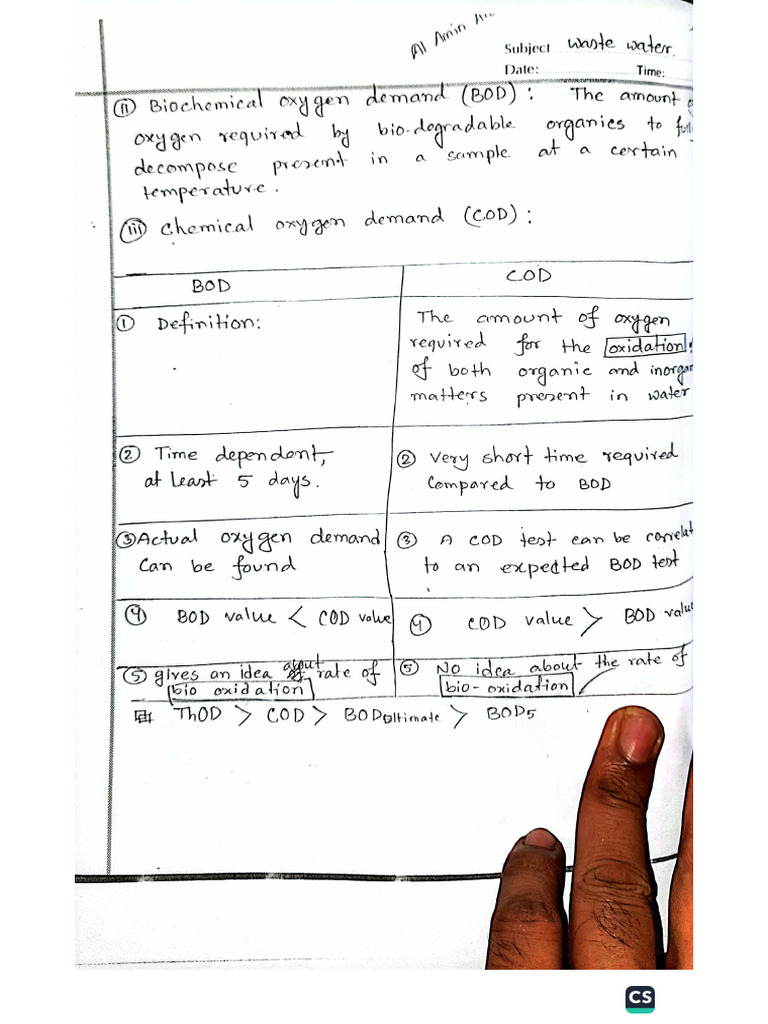 Al Amin
Subject waste water.
Date: Time:
(ii) Biochemical oxygen demand (BOD) : The amount
oxygen required by bio-degradable organies to
decompose present in a sample at a certain
temperature.
(iii) Chemical oxygen demand (COD) :
BOD
COD
① Definition:
The amount of oxygen
required for the oxidation
of both organic and
matters present in water
② Time dependent,
at least 5 days.
② Very short time required
Compared to BOD
③ Actual oxygen demand
Can be found
③ A COD test can be
to an expected BOD test
④ BOD value < COD value
④ COD value > BOD
⑤ gives an idea about rate of
bio oxidation
⑤ No idea about the rate of
bio-oxidation
ThOD > COD > BODultimate > BOD5
CS